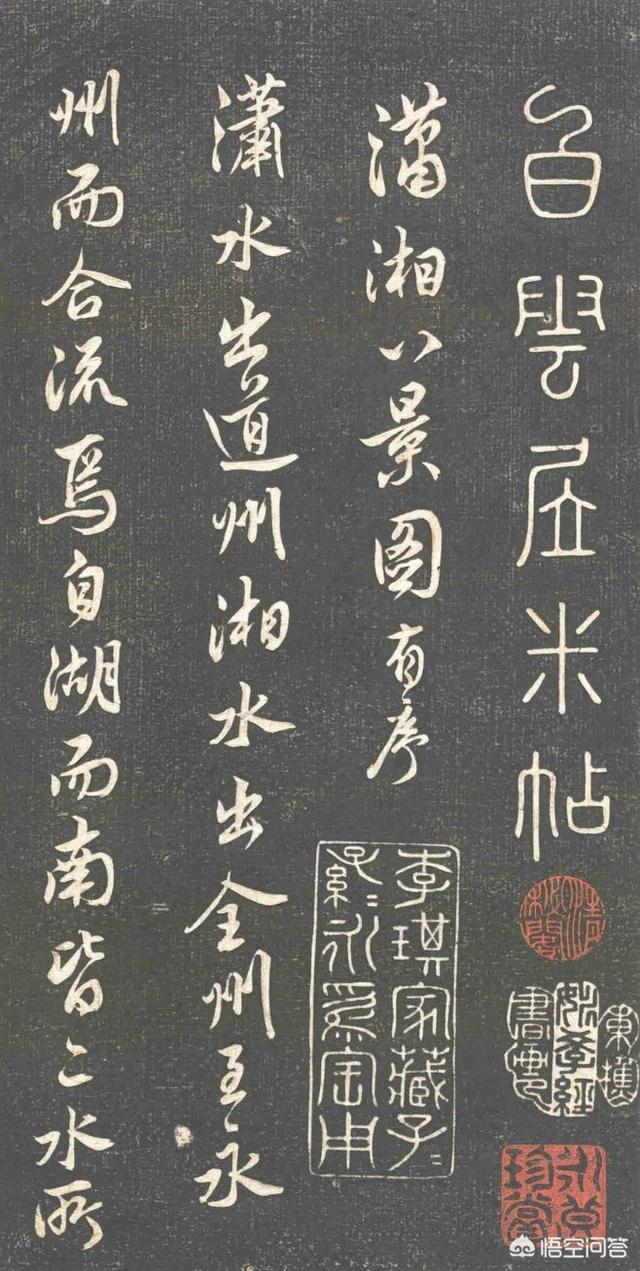 白雲居米帖
潇湘八景图有序
瀟水出道州湘水出全州至永
州而合流焉自湖而南皆二水所
李琪家藏子〻
孫〻永為宝用
悟空问答